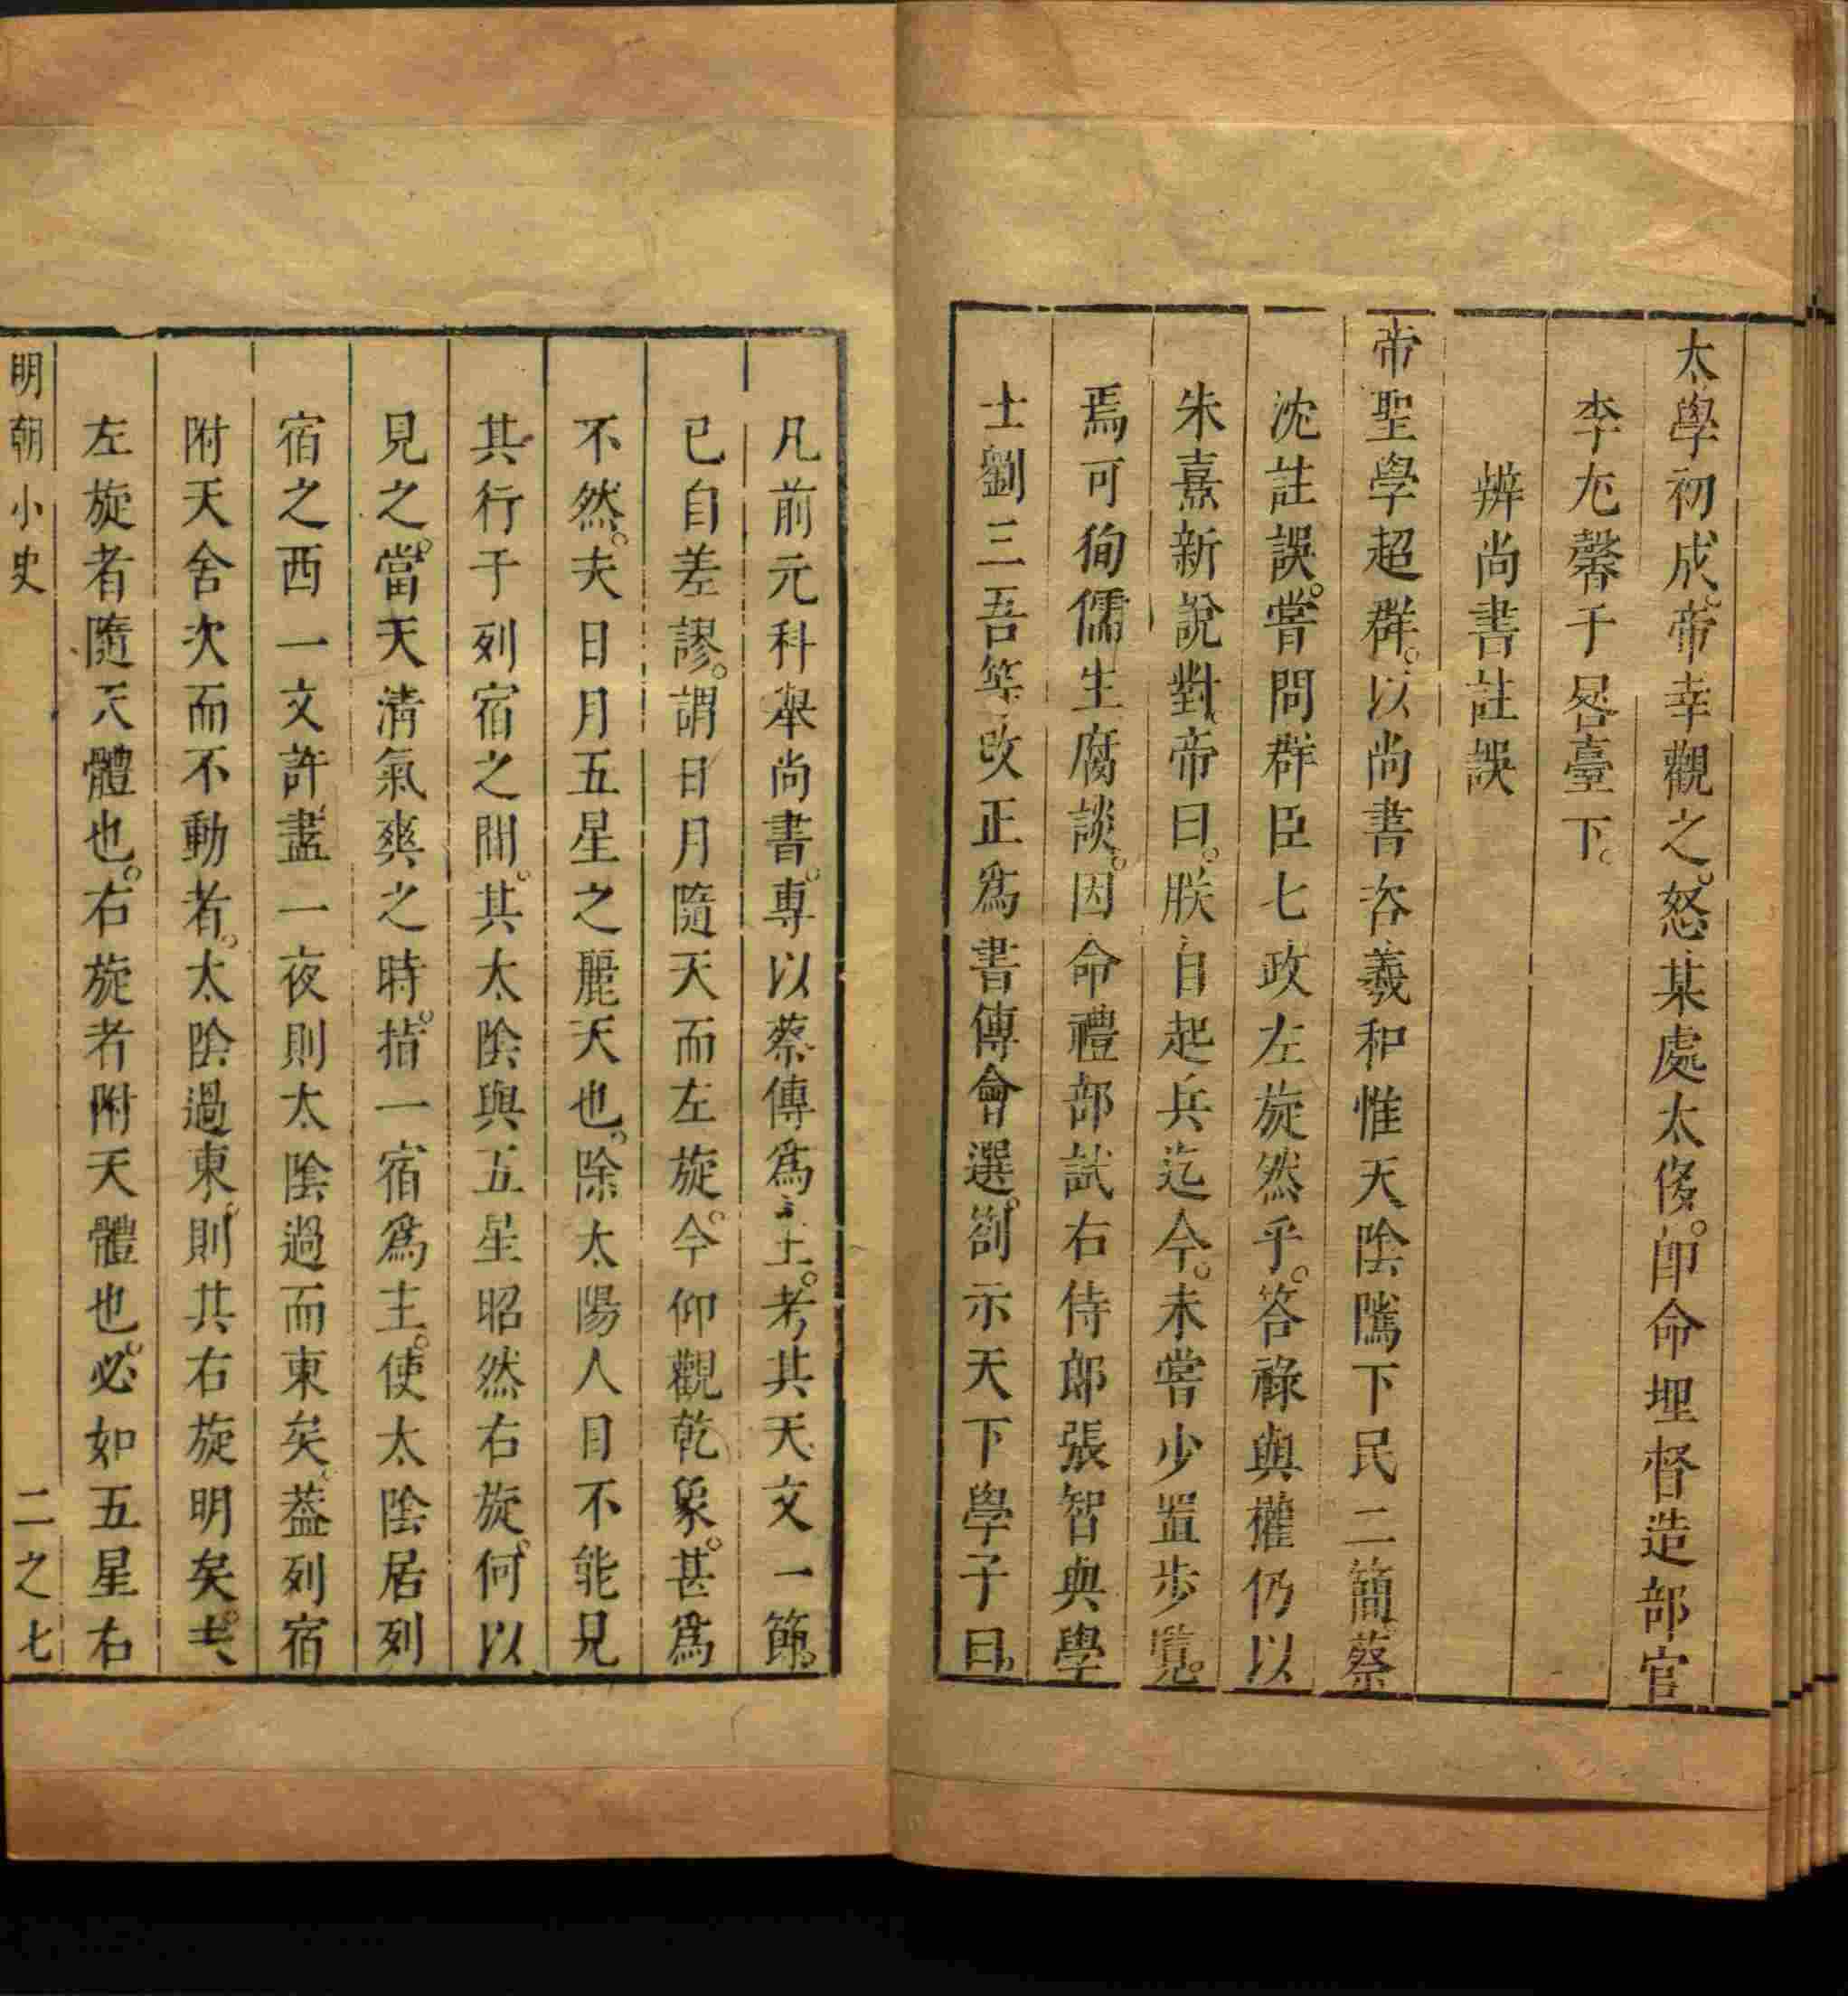 太學初成帝幸觀之。怒某處太侈。即命埋督造部官
李尨馨于晷臺下。
辨尚書註誤
帝聖學超群。以尚書咨羲和惟天陰隲下民二簡蔡
沈註誤。嘗問群臣七政左旋然乎。答祿與權仍以
朱熹新說對帝曰。朕自起兵迄今。未嘗少置步覽。
焉可徇儒生腐談。因命禮部試右侍郎張智與學
士劉三吾等改正為書傳會選。劄示天下學子曰。
凡前元科舉尚書。專以蔡傳爲主。考其天文一節。
已自差謬。謂日月隨天而左旋。今仰觀乾象。甚爲
不然。夫日月五星之麗天也。除太陽人目不能見
其行于列宿之間。其太陰與五星昭然右旋。何以
見之。當天清氣爽之時。指一宿爲主。使太陰居列
宿之西一文許盡一夜則太陰過而東矣。葢列宿
附天舍次而不動者。太陰過東。則其右旋明矣。夫
左旋者隨天體也。右旋者附天體也。必如五星右
明朝小史 二之七